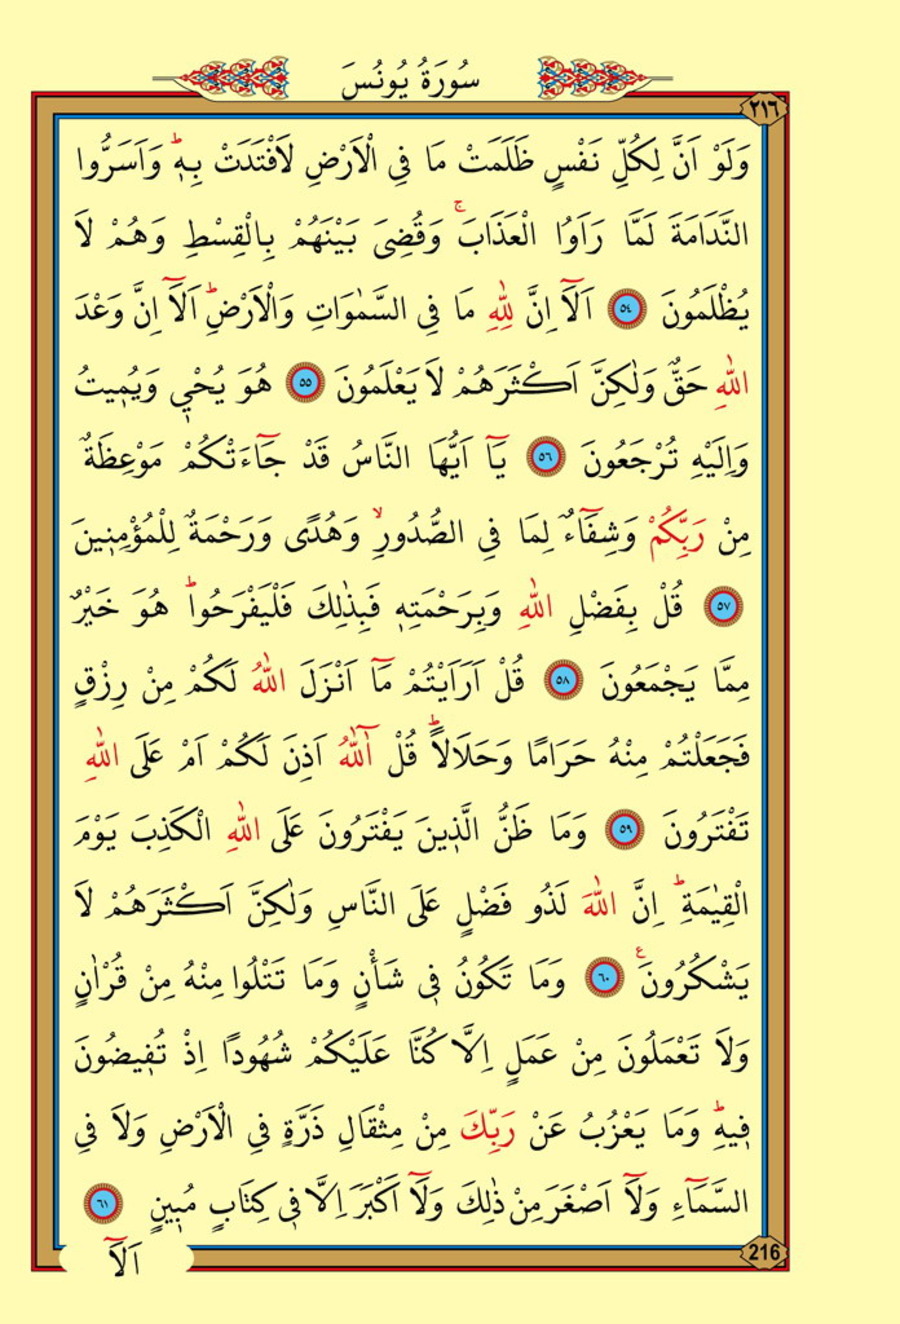 سُورَةُ يُونُسَ
٢١٦
وَلَوْ اَنَّ لِكُلِّ نَفْسٍ ظَلَمَتْ مَا فِي الْاَرْضِ لَافْتَدَتْ بِه۪ۜ وَاَسَرُّوا
النَّدَامَةَ لَمَّا رَاَوُا الْعَذَابَۚ وَقُضِيَ بَيْنَهُمْ بِالْقِسْطِ وَهُمْ لَا
يُظْلَمُونَ ﴿٥٤﴾ اَلَٓا اِنَّ لِلّٰهِ مَا فِي السَّمٰوَاتِ وَالْاَرْضِۜ اَلَٓا اِنَّ وَعْدَ
اللّٰهِ حَقٌّ وَلٰكِنَّ اَكْثَرَهُمْ لَا يَعْلَمُونَ ﴿٥٥﴾ هُوَ يُحْي۪ وَيُم۪يتُ
وَاِلَيْهِ تُرْجَعُونَ ﴿٥٦﴾ يَٓا اَيُّهَا النَّاسُ قَدْ جَٓاءَتْكُمْ مَوْعِظَةٌ
مِنْ رَبِّكُمْ وَشِفَٓاءٌ لِمَا فِي الصُّدُورِۙ وَهُدًى وَرَحْمَةٌ لِلْمُؤْمِن۪ينَ
﴿٥٧﴾ قُلْ بِفَضْلِ اللّٰهِ وَبِرَحْمَتِه۪ فَبِذٰلِكَ فَلْيَفْرَحُواۜ هُوَ خَيْرٌ
مِمَّا يَجْمَعُونَ ﴿٥٨﴾ قُلْ اَرَاَيْتُمْ مَٓا اَنْزَلَ اللّٰهُ لَكُمْ مِنْ رِزْقٍ
فَجَعَلْتُمْ مِنْهُ حَرَامًا وَحَلَالًاۜ قُلْ آٰللّٰهُ اَذِنَ لَكُمْ اَمْ عَلَى اللّٰهِ
تَفْتَرُونَ ﴿٥٩﴾ وَمَا ظَنُّ الَّذ۪ينَ يَفْتَرُونَ عَلَى اللّٰهِ الْكَذِبَ يَوْمَ
الْقِيٰمَةِۜ اِنَّ اللّٰهَ لَذُو فَضْلٍ عَلَى النَّاسِ وَلٰكِنَّ اَكْثَرَهُمْ لَا
يَشْكُرُونَ۟ ﴿٦٠﴾ وَمَا تَكُونُ ف۪ي شَأْنٍ وَمَا تَتْلُوا مِنْهُ مِنْ قُرْاٰنٍ
وَلَا تَعْمَلُونَ مِنْ عَمَلٍ اِلَّا كُنَّا عَلَيْكُمْ شُهُودًا اِذْ تُف۪يضُونَ
ف۪يهِۜ وَمَا يَعْزُبُ عَنْ رَبِّكَ مِنْ مِثْقَالِ ذَرَّةٍ فِي الْاَرْضِ وَلَا فِي
السَّمَٓاءِ وَلَٓا اَصْغَرَ مِنْ ذٰلِكَ وَلَٓا اَكْبَرَ اِلَّا ف۪ي كِتَابٍ مُب۪ينٍ ﴿٦١﴾
216
اَلَٓا